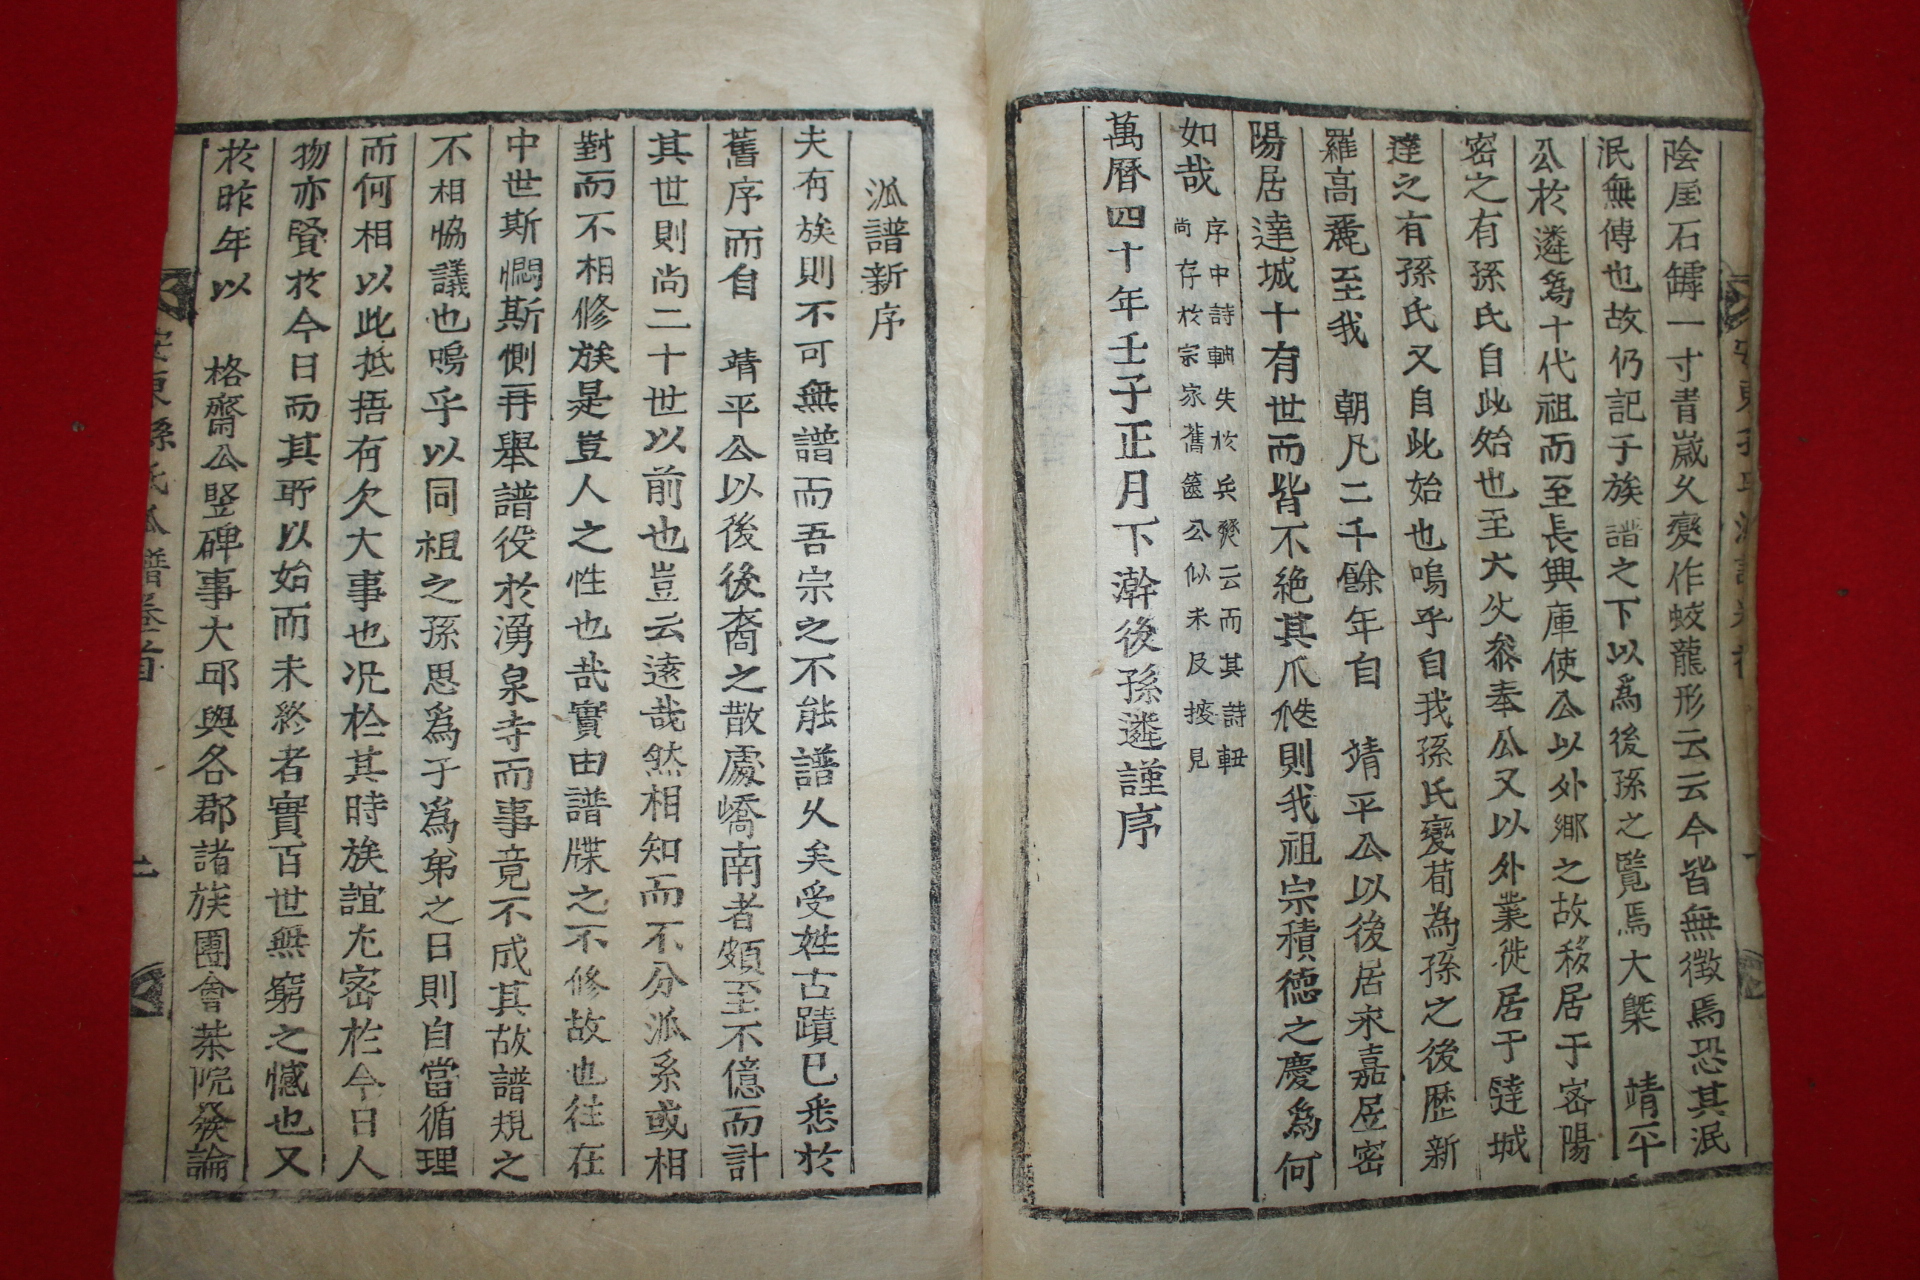 陰崖石罅一寸青嵗久變作蛟龍形云云今皆無徴焉恐其泯
泯無傳也故仍記子族譜之下以爲後孫之覧焉大槩 靖平
公於遴爲十代祖而至長興庫使公以外鄉之故移居于密陽
密之有孫氏自此始也至大父叅奉公又以外業徙居于達城
達之有孫氏又自此始也嗚乎自我孫氏變荀為孫之後歴新
羅高麗至我 朝凡二千餘年自 靖平公以後居永嘉居密
陽居達城十有世而皆不絶其瓜瓞則我祖宗積德之慶爲何
如哉 序中詩軸失於兵燹云而其詩軸
尚存於宗家舊篋公似未及搜見
萬曆四十年壬子正月下澣後孫遴謹序
派譜新序
夫有族則不可無譜而吾宗之不能譜久矣受姓古蹟已悉於
舊序而自 靖平公以後後裔之散處嶠南者頗至不億而計
其世則尚二十世以前也豈云遠哉然相知而不分派系或相
對而不相修族是豈人之性也哉實由譜牒之不修故也往在
中世斯憫斯惻再舉譜役於湧泉寺而事竟不成其故譜規之
不相恊議也嗚乎以同祖之孫思爲子爲弟之日則自當循理
而何相以此抵捂有欠大事也况於其時族誼尤密於今日人
物亦賢於今日而其所以始而未終者實百世無窮之憾也又
於昨年以 格齋公竪碑事大邱與各郡諸族團會棊院發論
安東孫氏派譜卷首
二